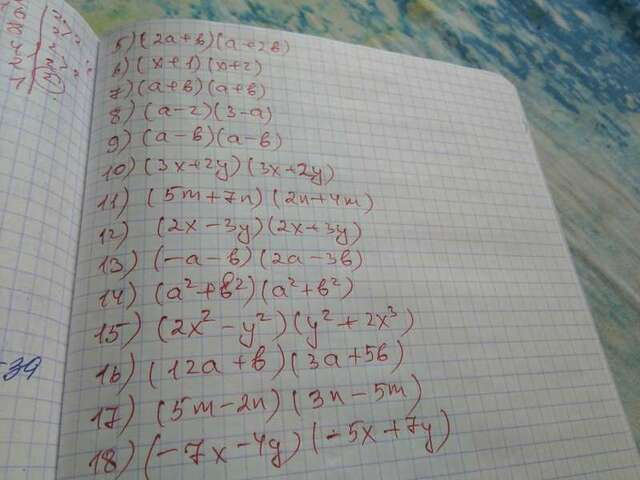 5) (2a+в)(a+2в)
6) (x+1)(x+2)
7) (a+в)(a+в)
8) (a-2)(3-a)
9) (a-в)(a-в)
10) (3x+2y)(3x+2y)
11) (5m+7n)(2n+4m)
12) (2x-3y)(2x+3y)
13) (-a-в)(2a-3в)
14) (a²+в²)(a²+в²)
15) (2x²-y²)(y²+2x³)
16) (12a+в)(3a+5в)
17) (5m-2n)(3n-5m)
18) (-7x-4y)(-5x+7y)
-39